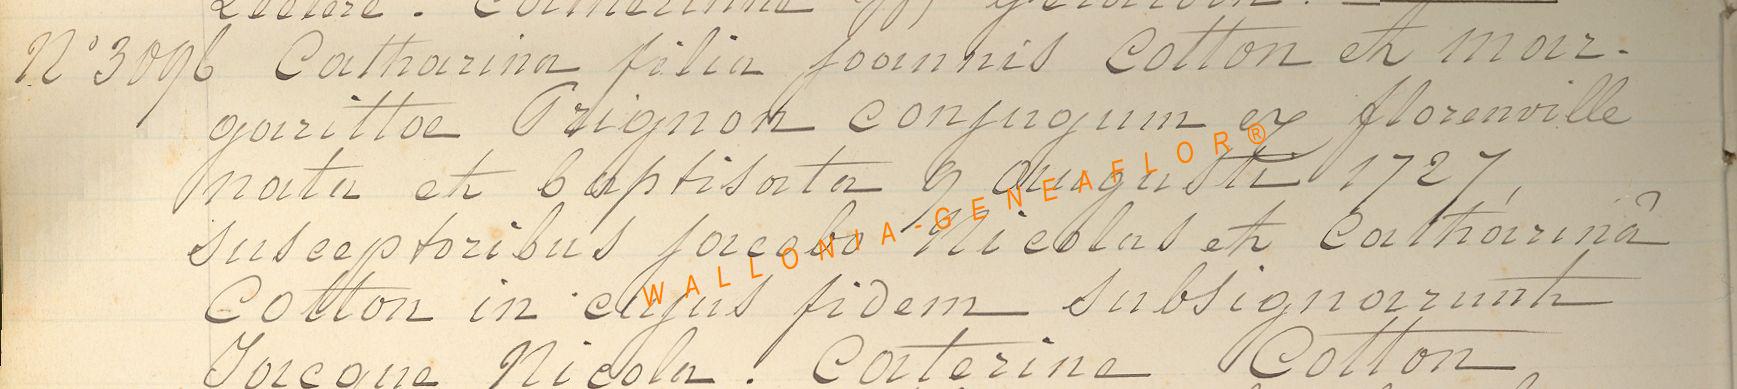 Leclere. Catherinne Gerardin.
N° 3096 Catharina filia joannis Cotton et mar-
garittae Prignon conjugum ex florenville
nata et baptisata 9 augusti 1727,
susceptoribus jacobo Nicolas et Catharina
Cotton in cujus fidem subsignarunt
Jacque Nicola. Caterine Cotton
WALLONIA-GENEAFLOR®